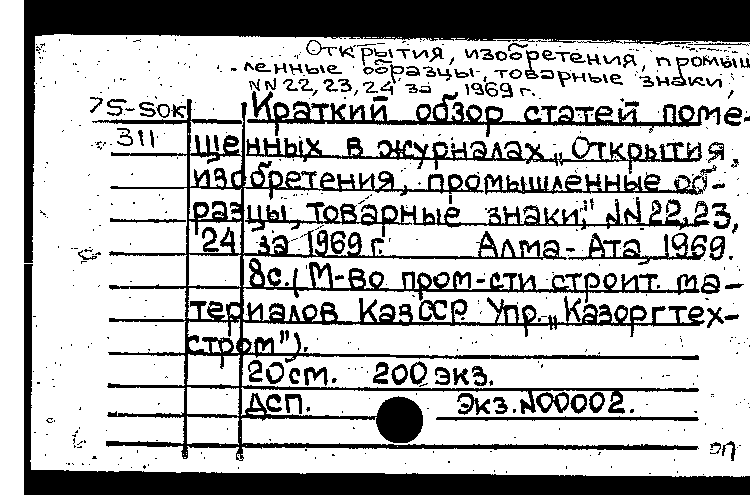 Открытия, изобретения, промыш
ленные образцы, товарные знаки,
NN 22, 23, 24 за 1969 г.
75-50к Краткий обзор статей, поме-
311 щенных в журналах „Открытия,
изобретения, промышленные об-
разцы, товарные знаки," NN 22, 23,
24 за 1969 г. Алма-Ата, 1969.
8с. (М-во пром-сти строит. ма-
териалов КазССР. Упр. „Казоргтех-
стром").
20см. 200 экз.
ДСП. Экз. N00002.